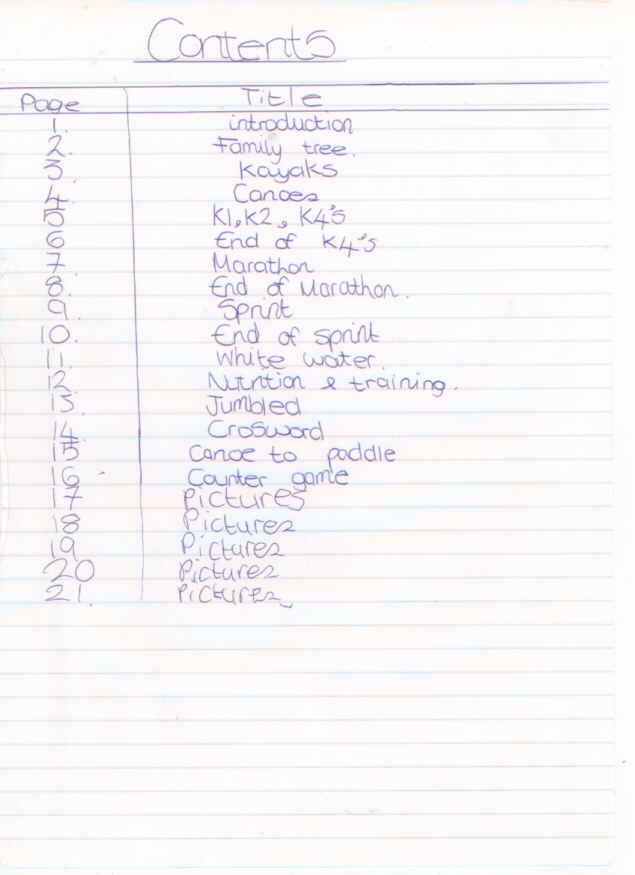 Contents
Page Title
1. introduction
2. Family tree.
3. Kayaks
4. Canoes
5 K1, K2, K4's
6 End of K4's
7. Marathon
8. End of Marathon.
9. Sprint
10. End of sprint
11. White water.
12. Nutrition & training.
13. Jumbled
14. Crosword
15 Canoe to paddle
16 Counter game
17 Pictures
18 Pictures
19 Pictures
20 Pictures
21. Pictures